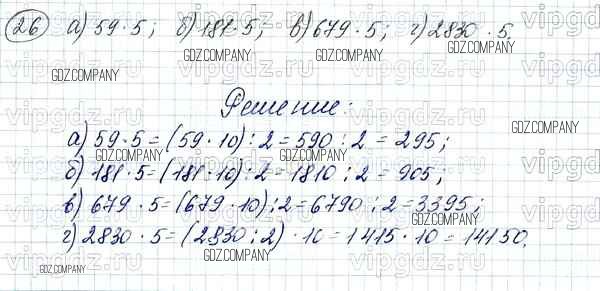 26 а) 59 · 5; б) 181 · 5; в) 679 · 5; г) 2830 · 5.
Решение:
а) 59 · 5 = (59 · 10) : 2 = 590 : 2 = 295;
б) 181 · 5 = (181 · 10) : 2 = 1810 : 2 = 905;
в) 679 · 5 = (679 · 10) : 2 = 6790 : 2 = 3395;
г) 2830 · 5 = (2830 : 2) · 10 = 1415 · 10 = 14150.
GDZ.COMPANY
GDZ.COMPANY
GDZ.COMPANY
GDZ.COMPANY
GDZ.COMPANY
GDZ.COMPANY
GDZ.COMPANY
GDZ.COMPANY
GDZ.COMPANY
GDZ.COMPANY
GDZ.COMPANY
vipgdz.ru
vipgdz.ru
vipgdz.ru
vipgdz.ru